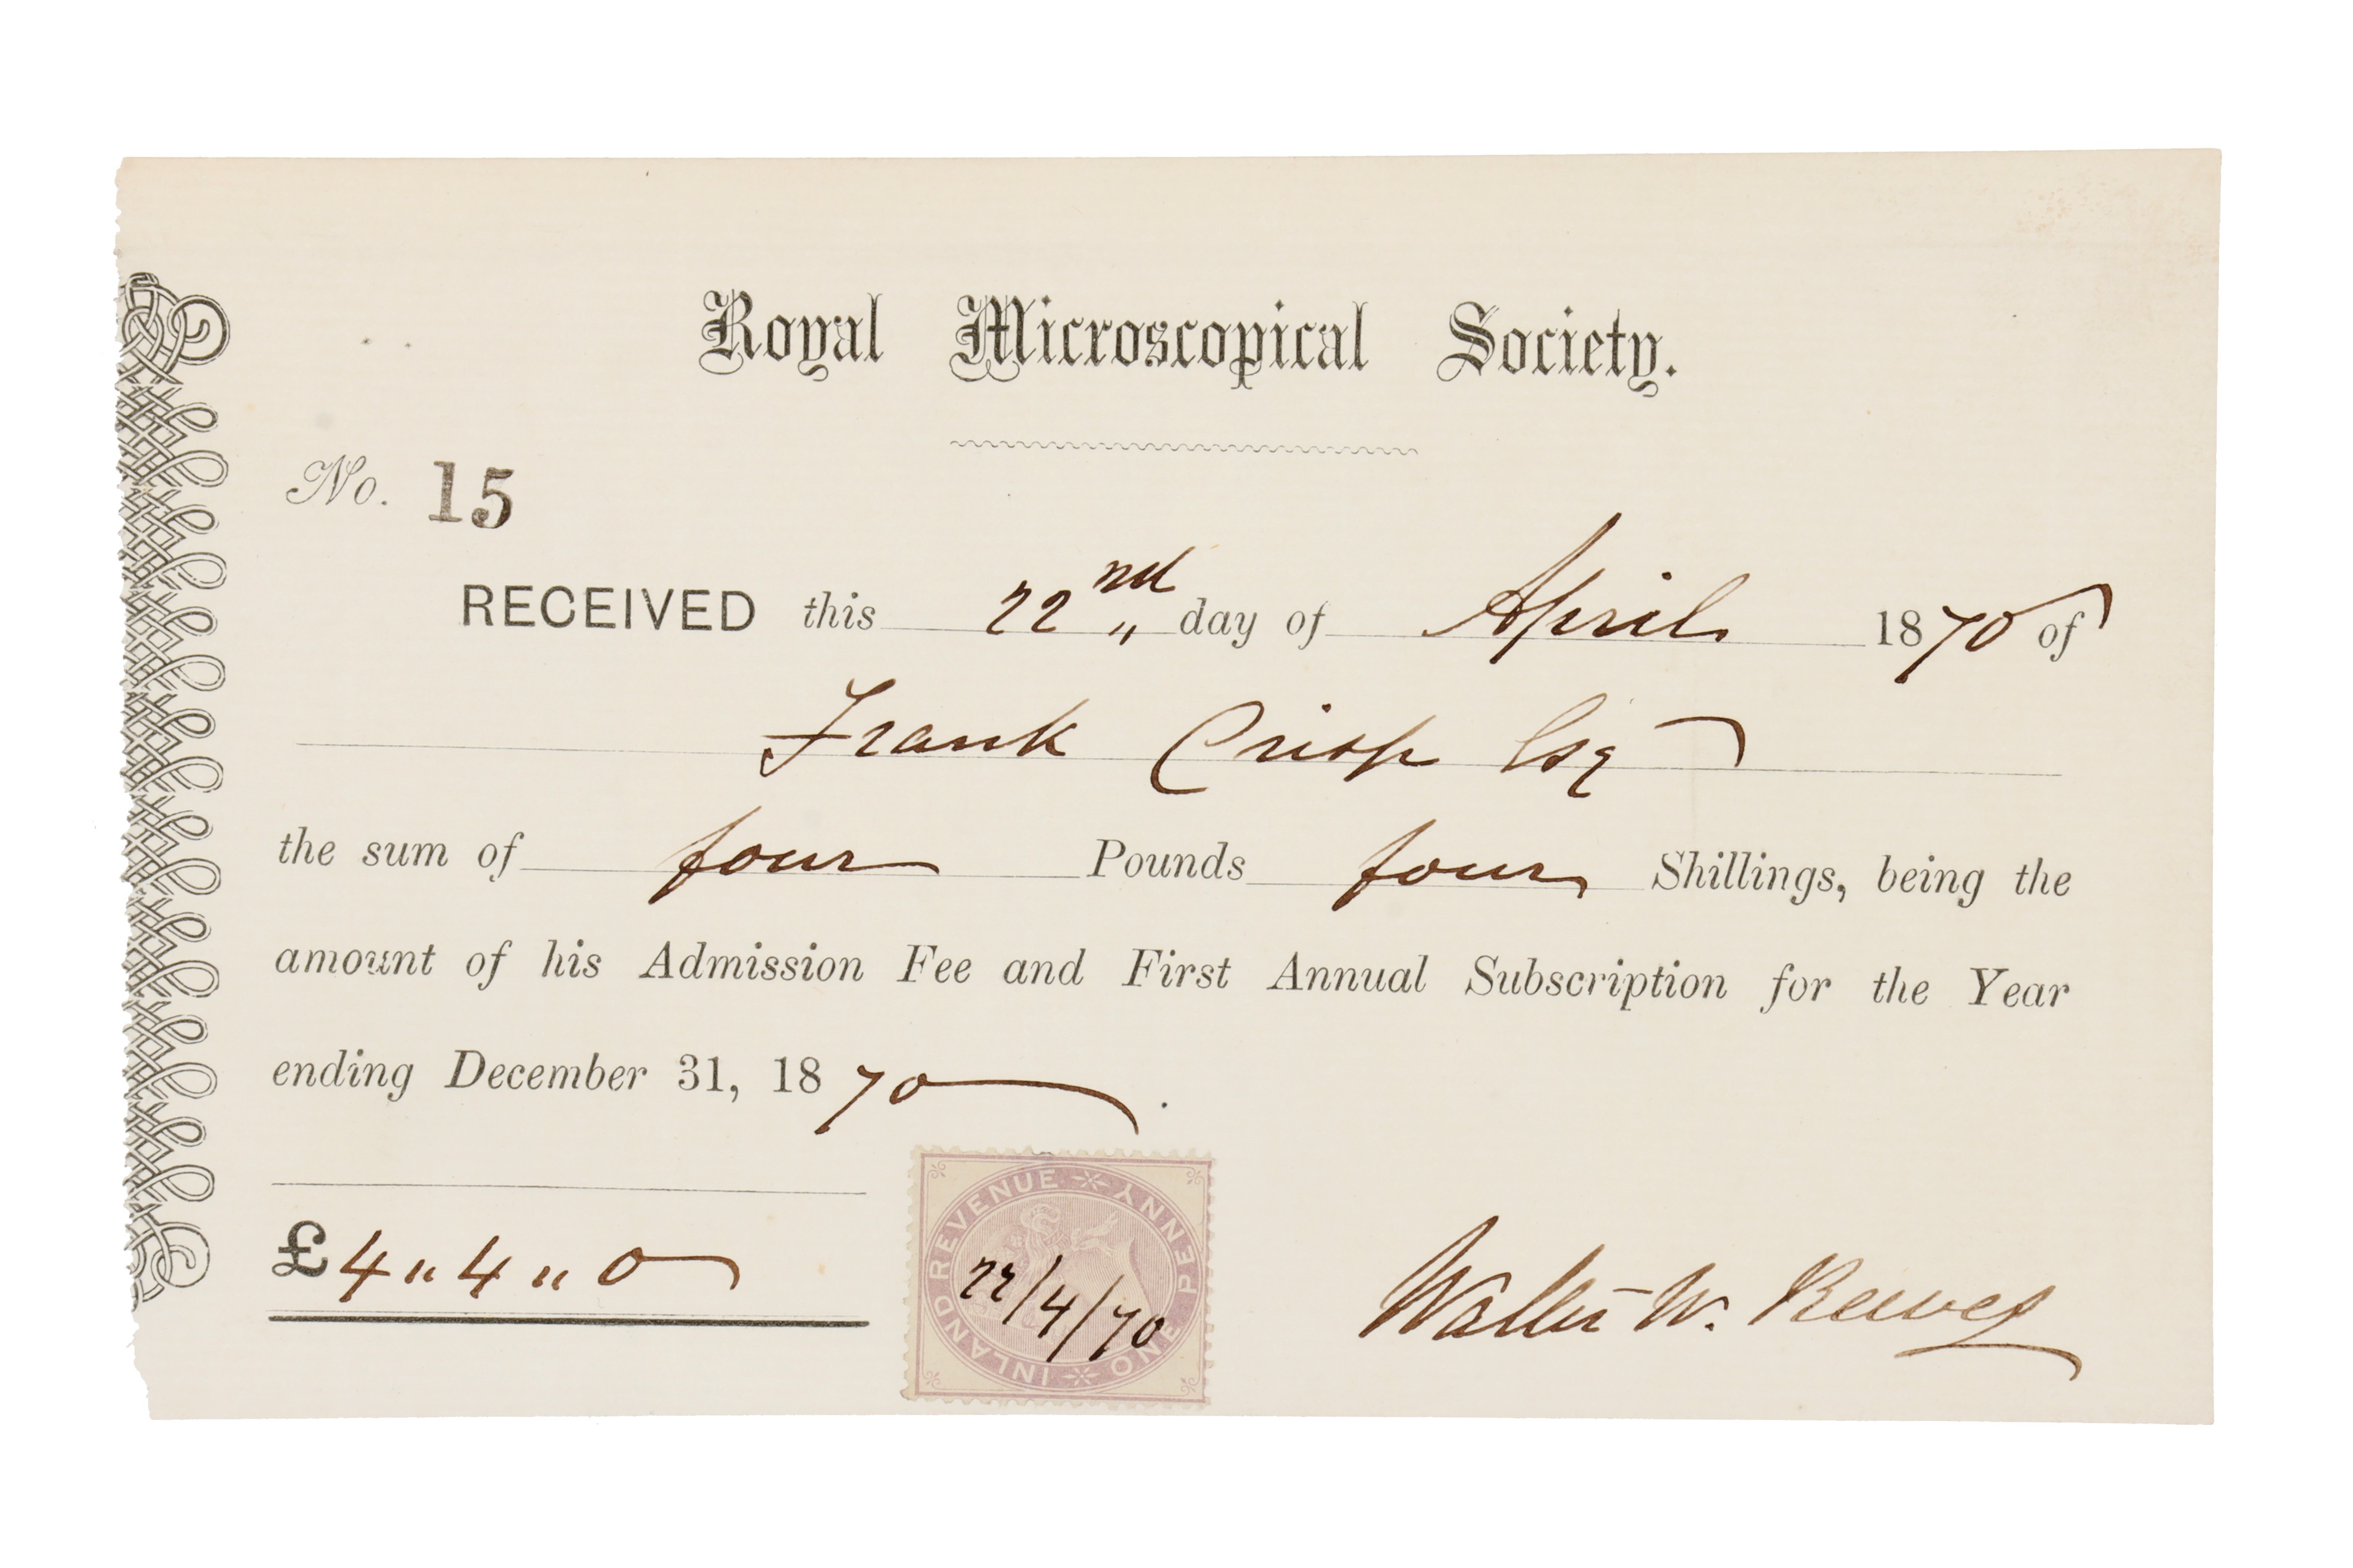 Royal Microscopical Society.
No. 15
RECEIVED this 22nd „ day of April 1870 of
Frank Crisp Esq
the sum of four Pounds four Shillings, being the
amount of his Admission Fee and First Annual Subscription for the Year
ending December 31, 1870
£4„4„0
INLAND REVENUE ONE PENNY
22/4/70
Walter W. Reeves